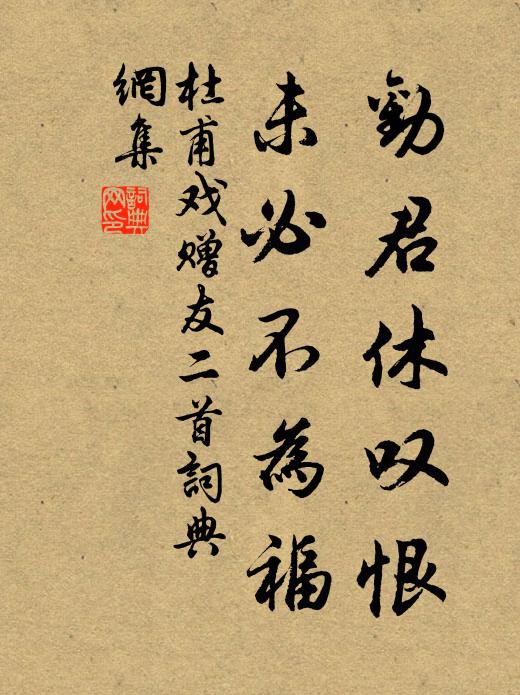 勸君休叹恨
未必不為福
杜甫戏赠友二首詞典
網集
詞典网印